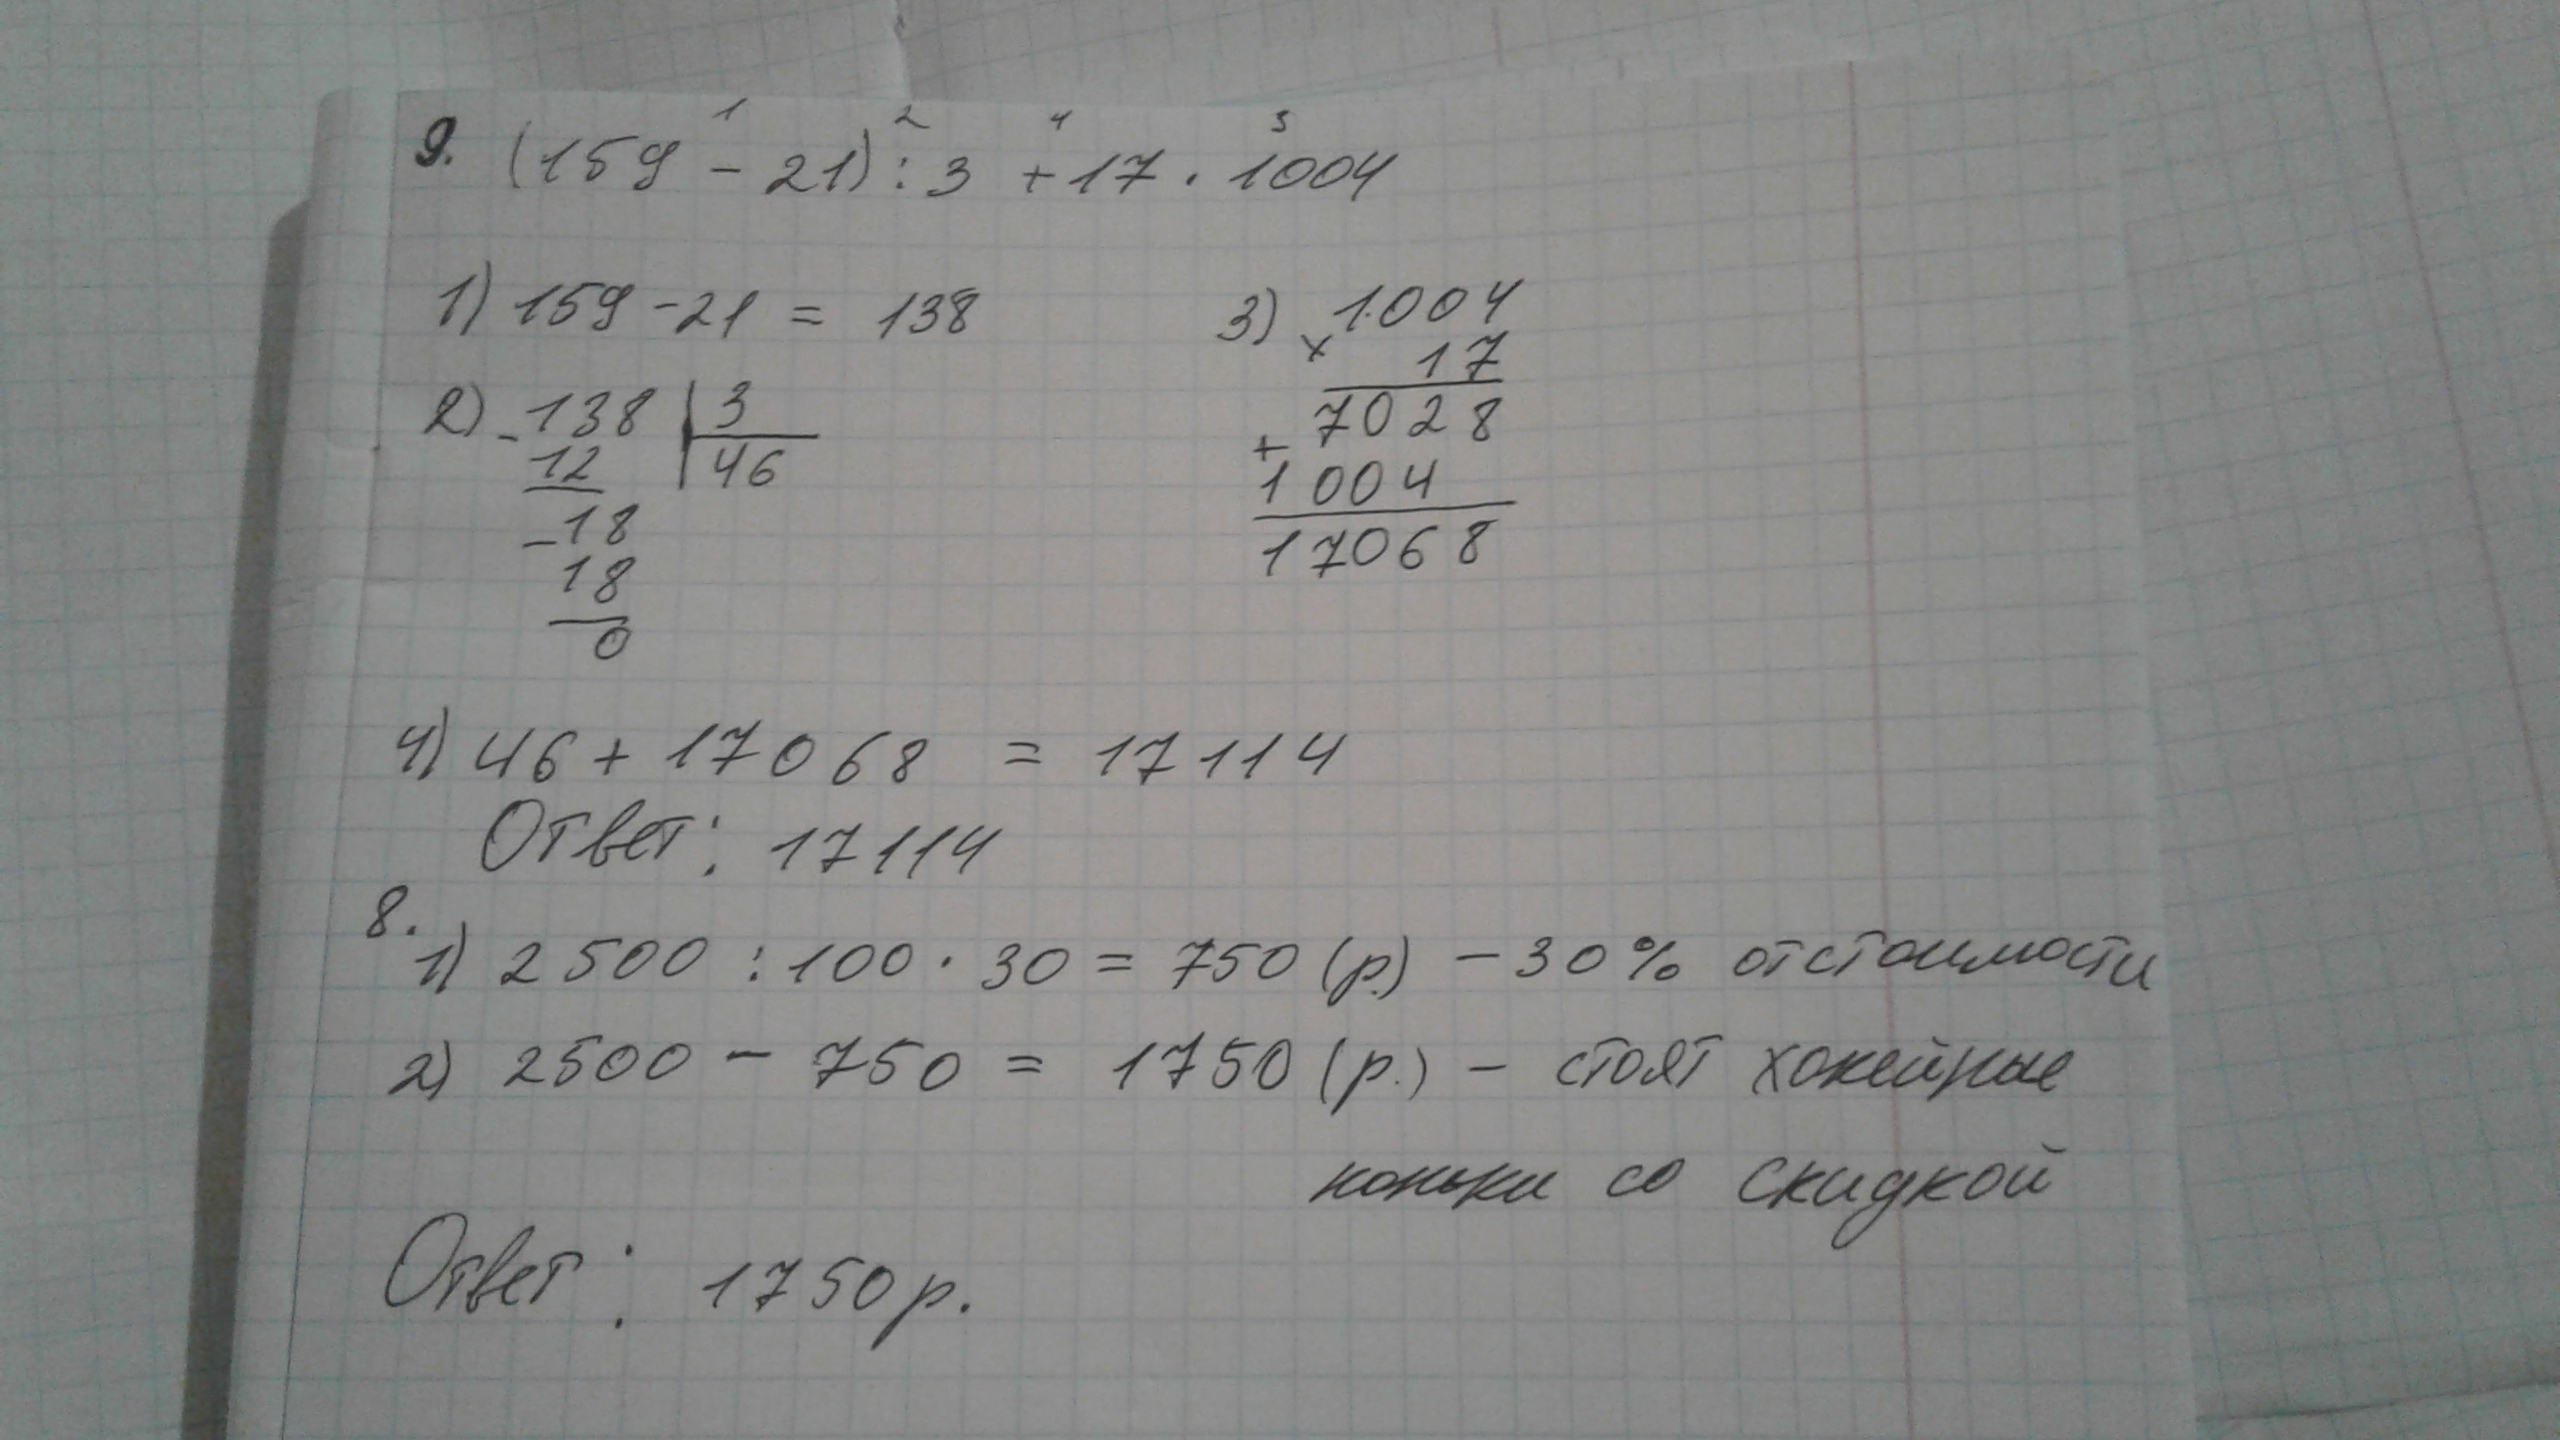 1 2 4 3
9. (159 - 21) : 3 + 17 · 1004
1) 159 - 21 = 138
2) - 138 | 3
12 | 46
- 18
18
0
3) × 1004
17
7028
+
1004
17068
4) 46 + 17068 = 17114
Ответ: 17114
8.
1) 2500 : 100 · 30 = 750 (р.) - 30% от стоимости
2) 2500 - 750 = 1750 (р.) - стоят хокейные
коньки со скидкой
Ответ: 1750 р.